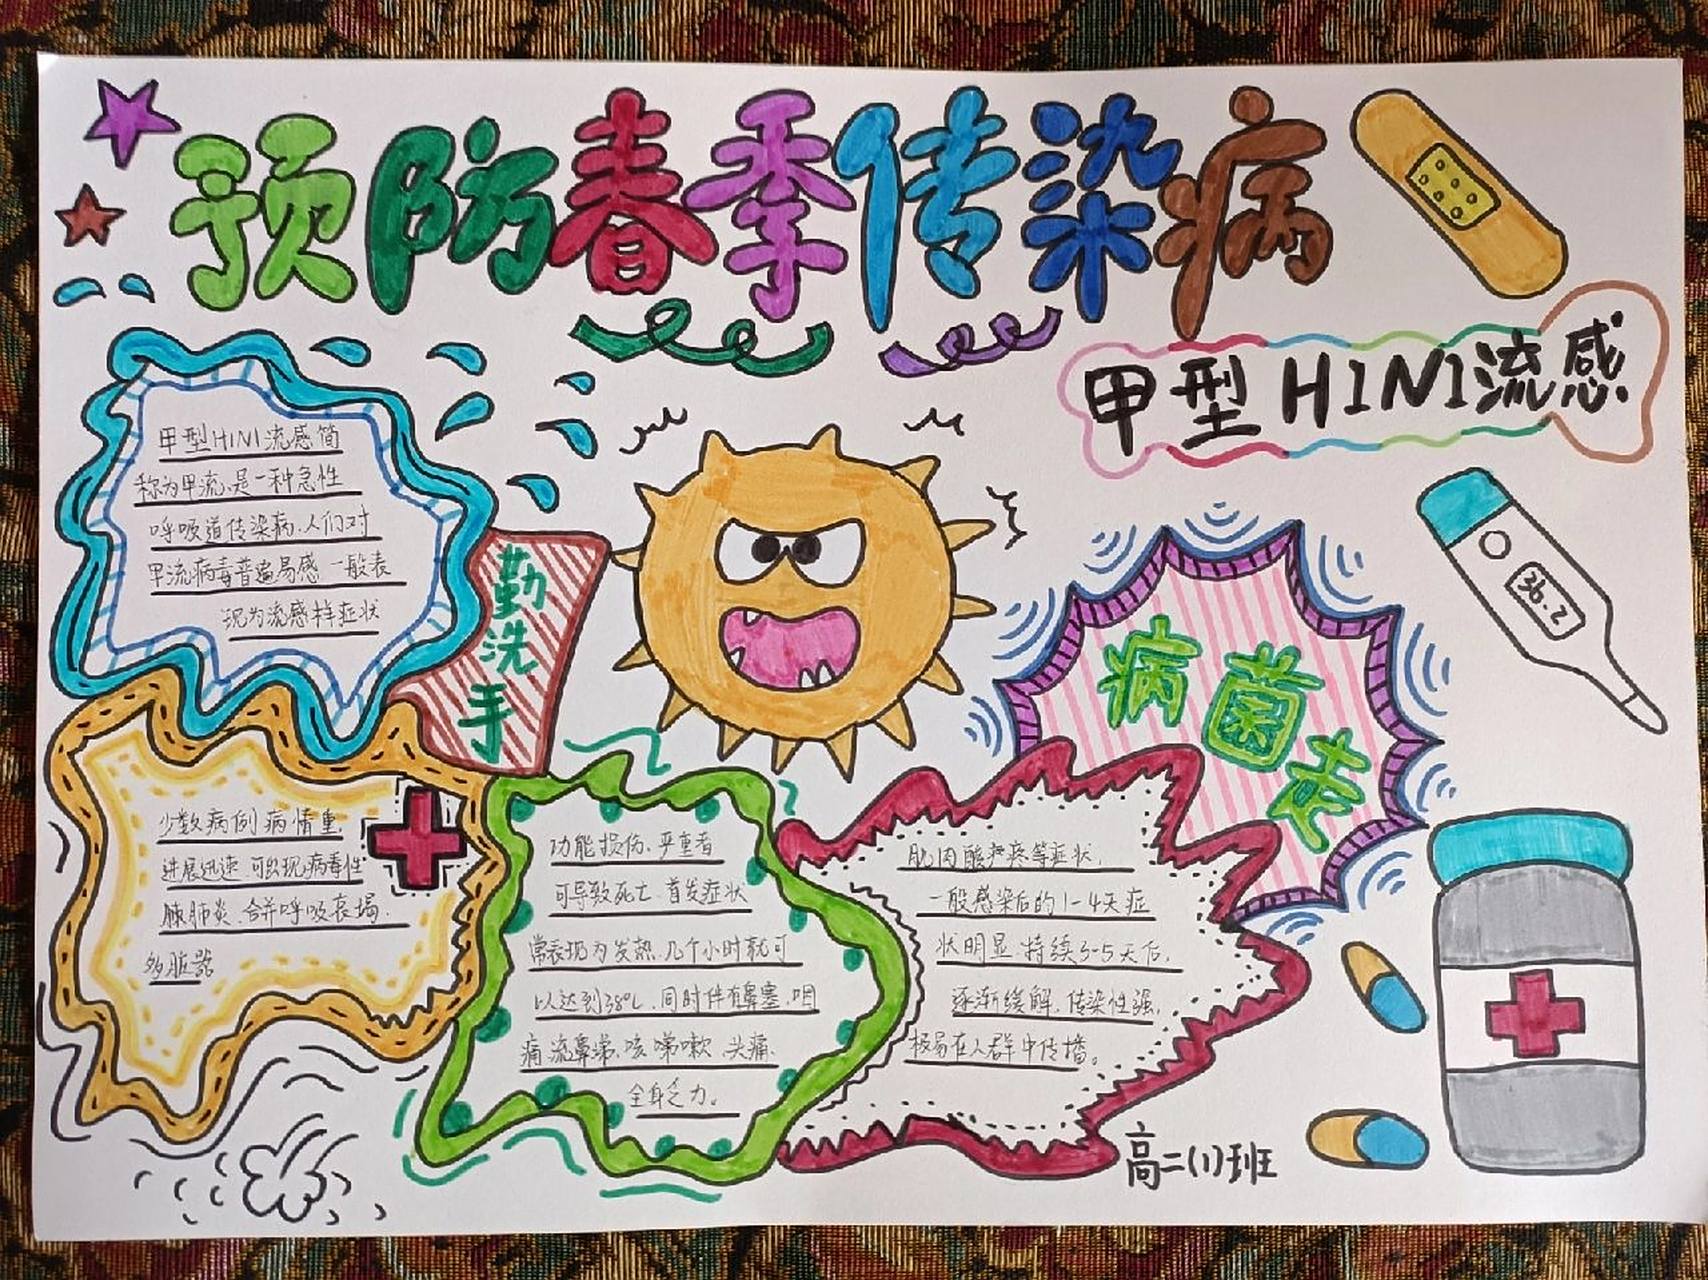 预防春季传染病
甲型H1N1流感
甲型H1N1流感简
称为甲流,是一种急性
呼吸道传染病,人们对
甲流病毒普遍易感 一般表
现为流感样症状
勤洗手
36.2
病菌走
少数病例病情重,
进展迅速,可出现病毒性
肺炎,合并呼吸衰竭,
多脏器
功能损伤,严重者
可导致死亡,首发症状
常表现为发热,几个小时就可
以达到38℃,同时伴有鼻塞,咽
痛,流鼻涕,咳嗽,头痛,
全身乏力。
肌肉酸疼等症状,
一般感染后的1-4天症
状明显,持续3-5天后,
逐渐缓解,传染性强,
极易在人群中传播。
高二(1)班